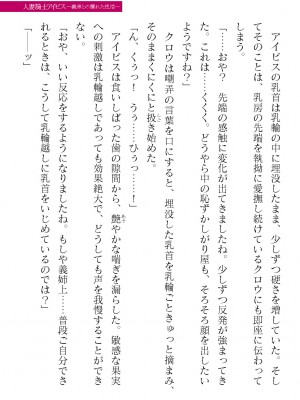 人妻騎士アイビス―義弟との爛れた性活―
アイビスの乳首は乳輪の中に埋没したまま、少しずつ硬さを増していた。そし
てそのことは、乳房の先端を執拗に愛撫し続けているクロウにも即座に伝わって
いた。
「……おや？　先端の感触に変化が出てきましたね。少しずつ反発が強まってき
た。これは……くくく。どうやら中の恥ずかしがり屋も、そろそろ顔を出したい
ようですね？」
クロウは嘲弄の言葉を口にすると、埋没した乳首を乳輪ごときゅっと摘まみ、
そのままくにくにと扱き始めた。
「ん、くぅっ！　うぅ……ひぅっ……！」
アイビスは食いしばった歯の隙間から、艶やかな喘ぎを漏らした。敏感な果実
への刺激は乳輪越しであっても効果絶大で、どうしても声を我慢することができ
ない。
「おや、いい反応をするようになりましたね。もしや義姉上……普段ご自分でさ
れるときは、こうして乳輪越しに乳首をいじめているのでは？」
「――ッ」